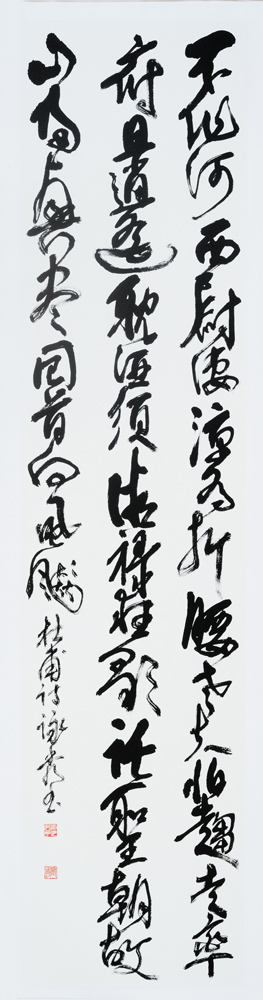 不作河西尉淒涼為折腰老夫怕趨走率
府且逍遥耽酒須微禄狂歌託聖朝故
山歸興盡回首向風飈
杜甫詩